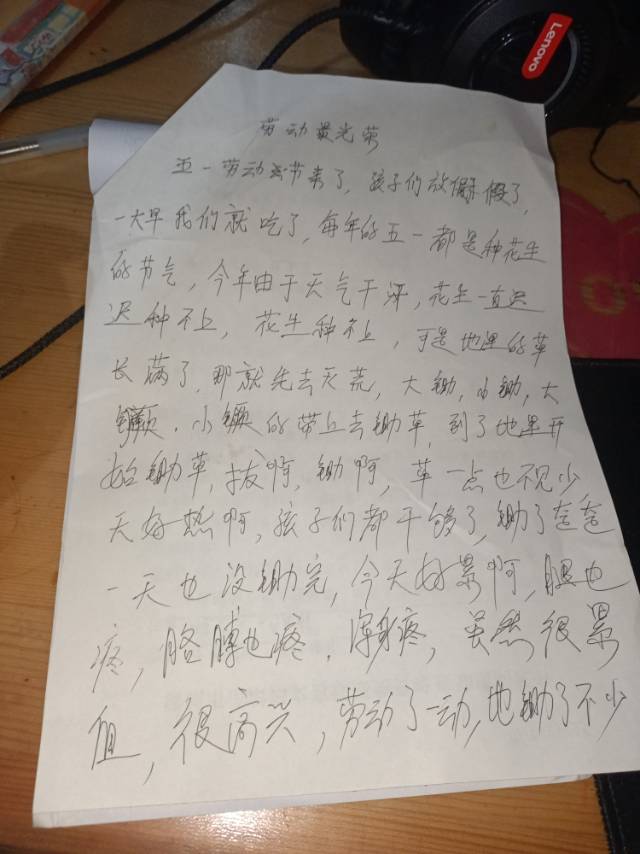 Lenovo
劳动最光荣
五一劳动节来了,孩子们放假了,
一大早我们就吃了,每年的五一都是种花生
的节气,今年由于天气干旱,花生一直迟
迟种不上,花生种不上,于是地里的草
长满了,那就先去灭荒,大锄,小锄,大
镢,小镢的带上去锄草,到了地里开
始锄草,拔啊,锄啊,草一点也不见少
天好热啊,孩子们都干够了,锄了
一天也没锄完,今天好累啊,腿也
疼,胳膊也疼,浑身疼,虽然很累
但,很高兴,劳动了一动,地锄了不少